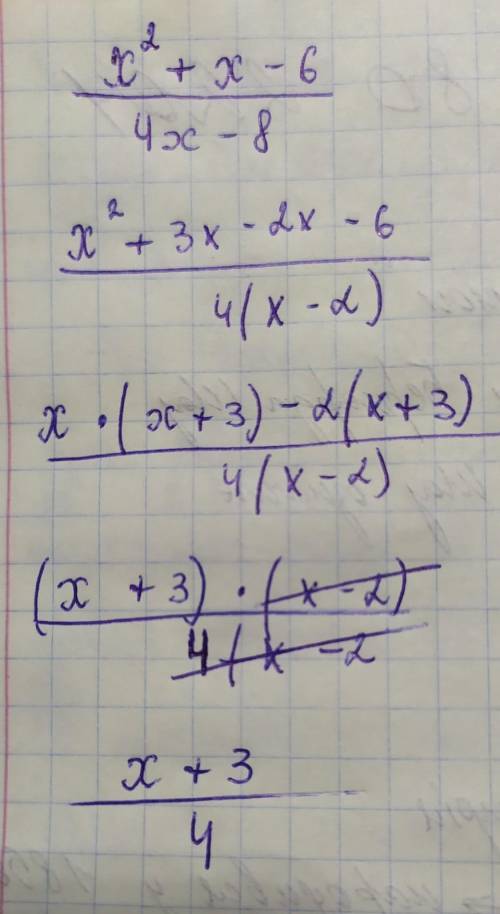 x² + x - 6
4x - 8
x² + 3x - 2x - 6
4(x - 2)
x · (x + 3) - 2(x + 3)
4(x - 2)
(x + 3) · (x - 2)
4(x - 2
x + 3
4